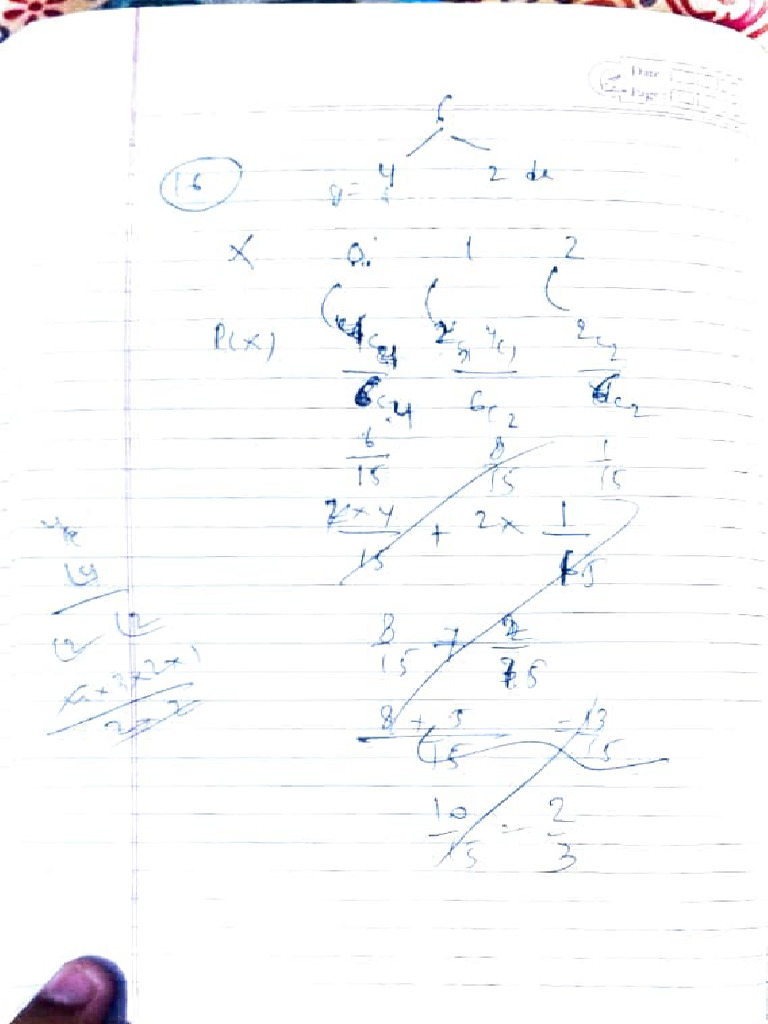 Date
Page
6
16
g = 4 2 de
X 0 1 2
P(X) 4C2 2C1 4C1 2C2
6C2 6C2
6/15 8/15 1/15
2×4/15 + 2 × 1/15
8/15 + 2/15
8 + 5/15 = 13/15
10/15 = 2/3
4×3×2×1